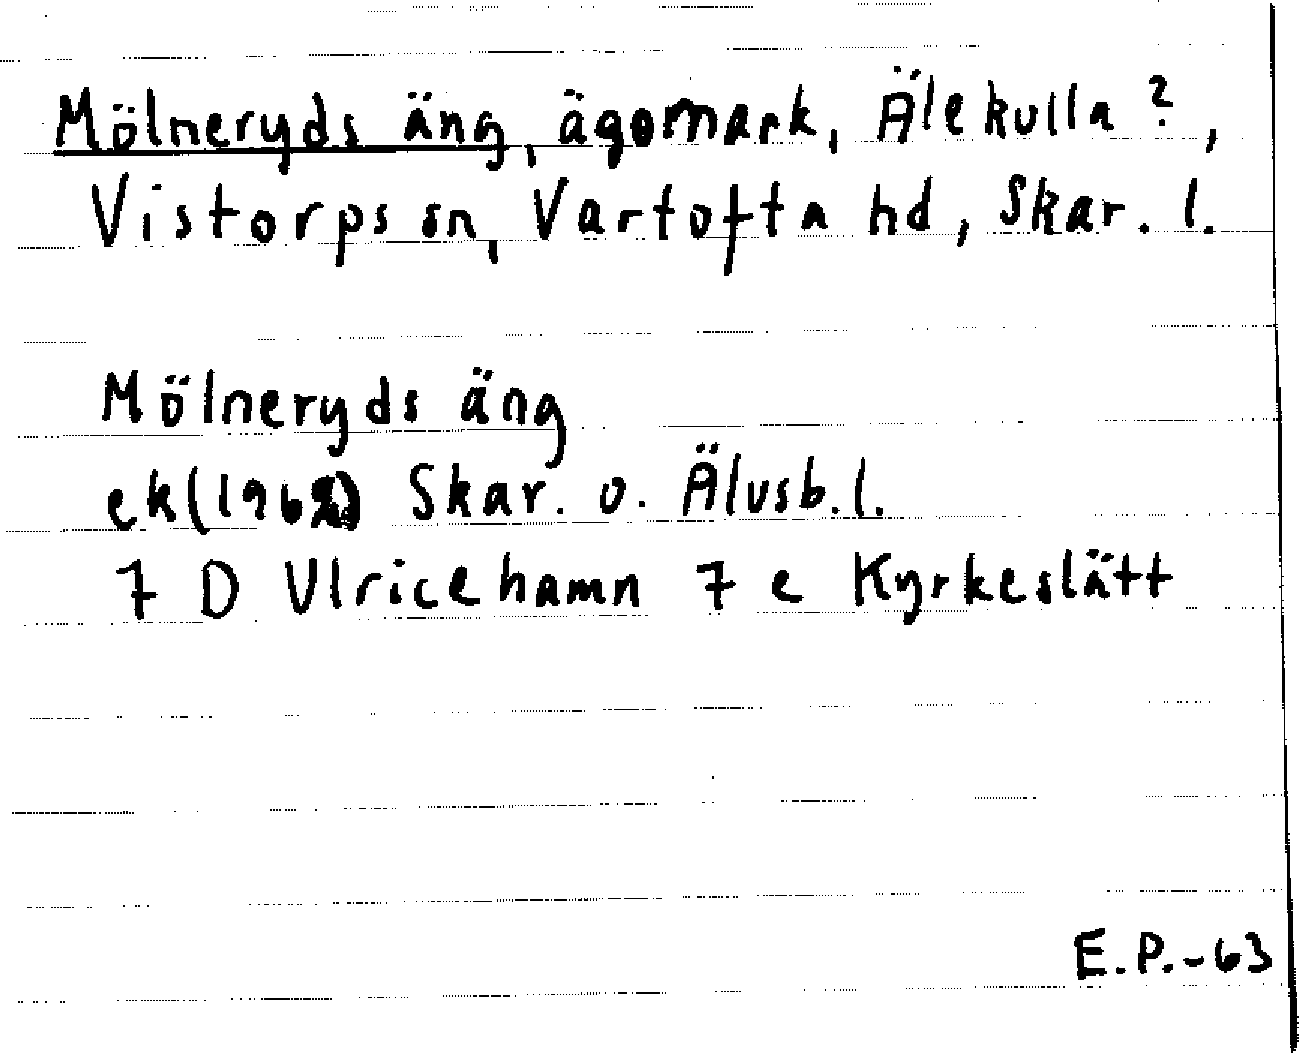 Mölneryds äng, ägomark, Älekulla?,
Vistorps sn, Vartofta hd, Skar. l.
Mölneryds äng
ek (1962) Skar. o. Älvsb. l.
7 D Ulricehamn 7 e Kyrkeslätt
E.P.-63